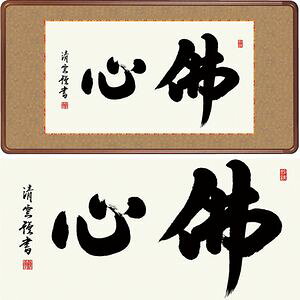 佛心
清雲謹書
佛心
清雲謹書